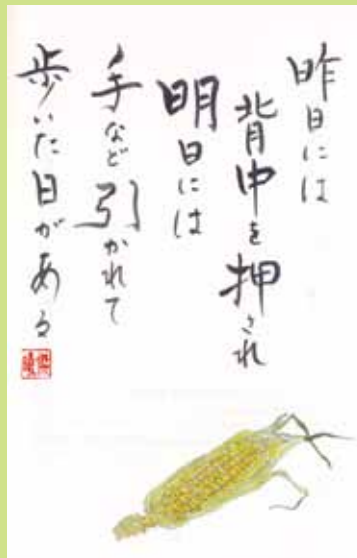 昨日には
背中を押され
明日には
手など引かれて
歩いた日がある